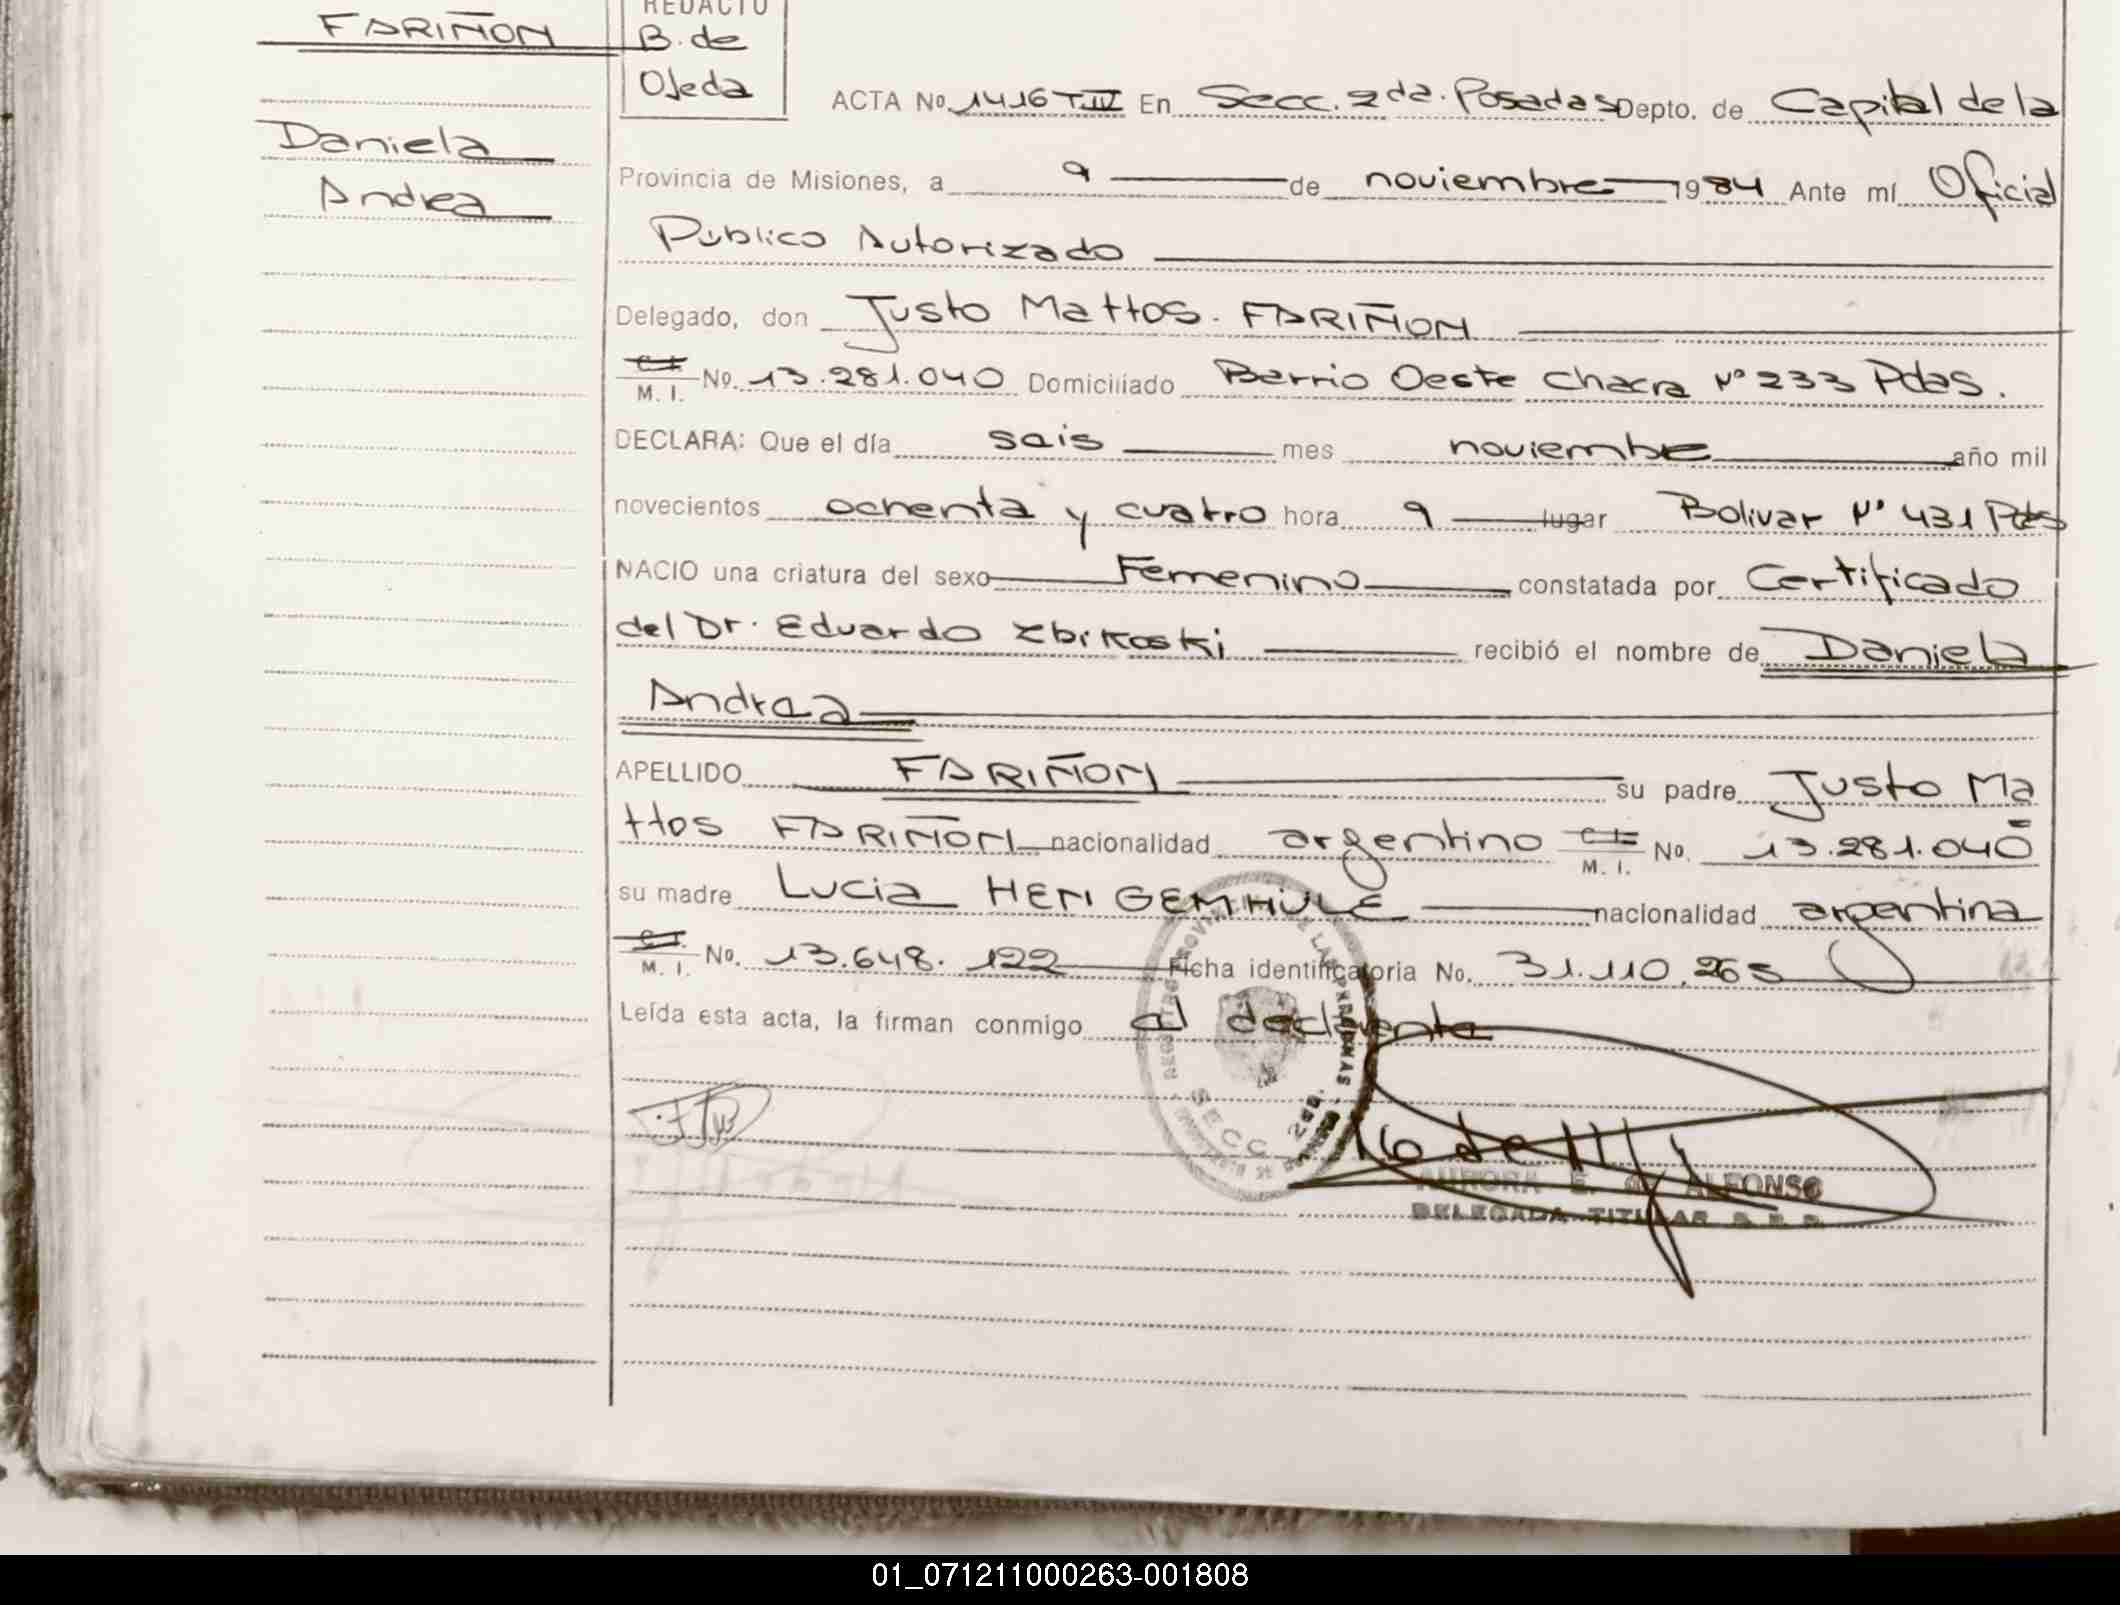 FARIÑON
REDACTO
B. de
Ojeda
Daniela
Andrea
ACTA No. 1416 T.IV En Secc. 2da. Posadas Depto. de Capital de la
Provincia de Misiones, a 9 de noviembre 1984 Ante mí Oficial
Publico Autorizado
Delegado, don Justo Mattos. FARIÑON
C.I.
M. I. No. 13.281.040 Domiciliado Barrio Oeste Chacra Nº 233 Pdas.
DECLARA: Que el día seis mes noviembre año mil
novecientos ochenta y cuatro hora 9 lugar Bolivar Nº 431 Pdas
NACIO una criatura del sexo Femenino constatada por Certificado
del Dr. Eduardo Zbikoski recibió el nombre de Daniela
Andrea
APELLIDO FARIÑON su padre Justo Ma
ttos FARIÑON nacionalidad argentino C.I.
M. I. No. 13.281.040
su madre Lucia HEN GEMHÜLE nacionalidad argentina
C.I.
M. I. No. 13.648.122 Ficha identificatoria No. 31.110.265
Leída esta acta, la firman conmigo el declarante
SECC. 2da.
AURORA E. de ALFONSO
DELEGADA TITULAR R. P. P.
01_071211000263-001808